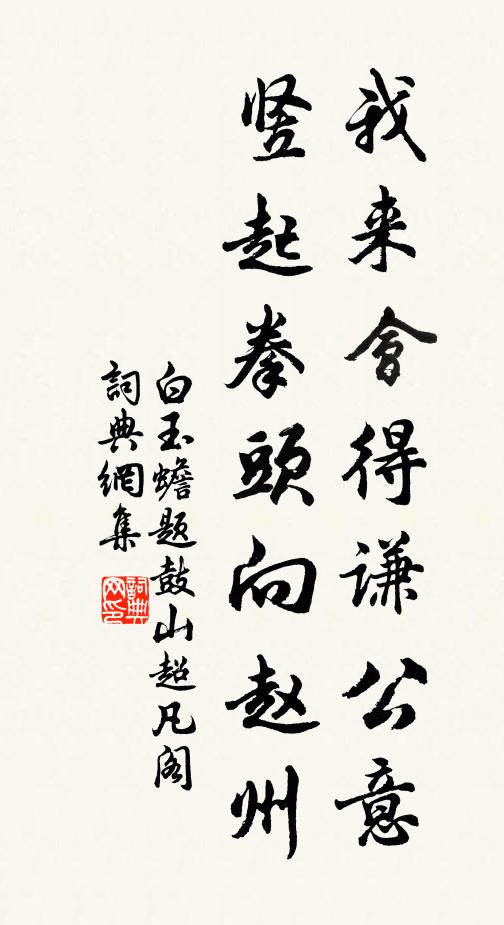 我来會得谦公意
竖起拳頭向赵州
白玉蟾题鼓山超凡阁
詞典網集
詞典网印